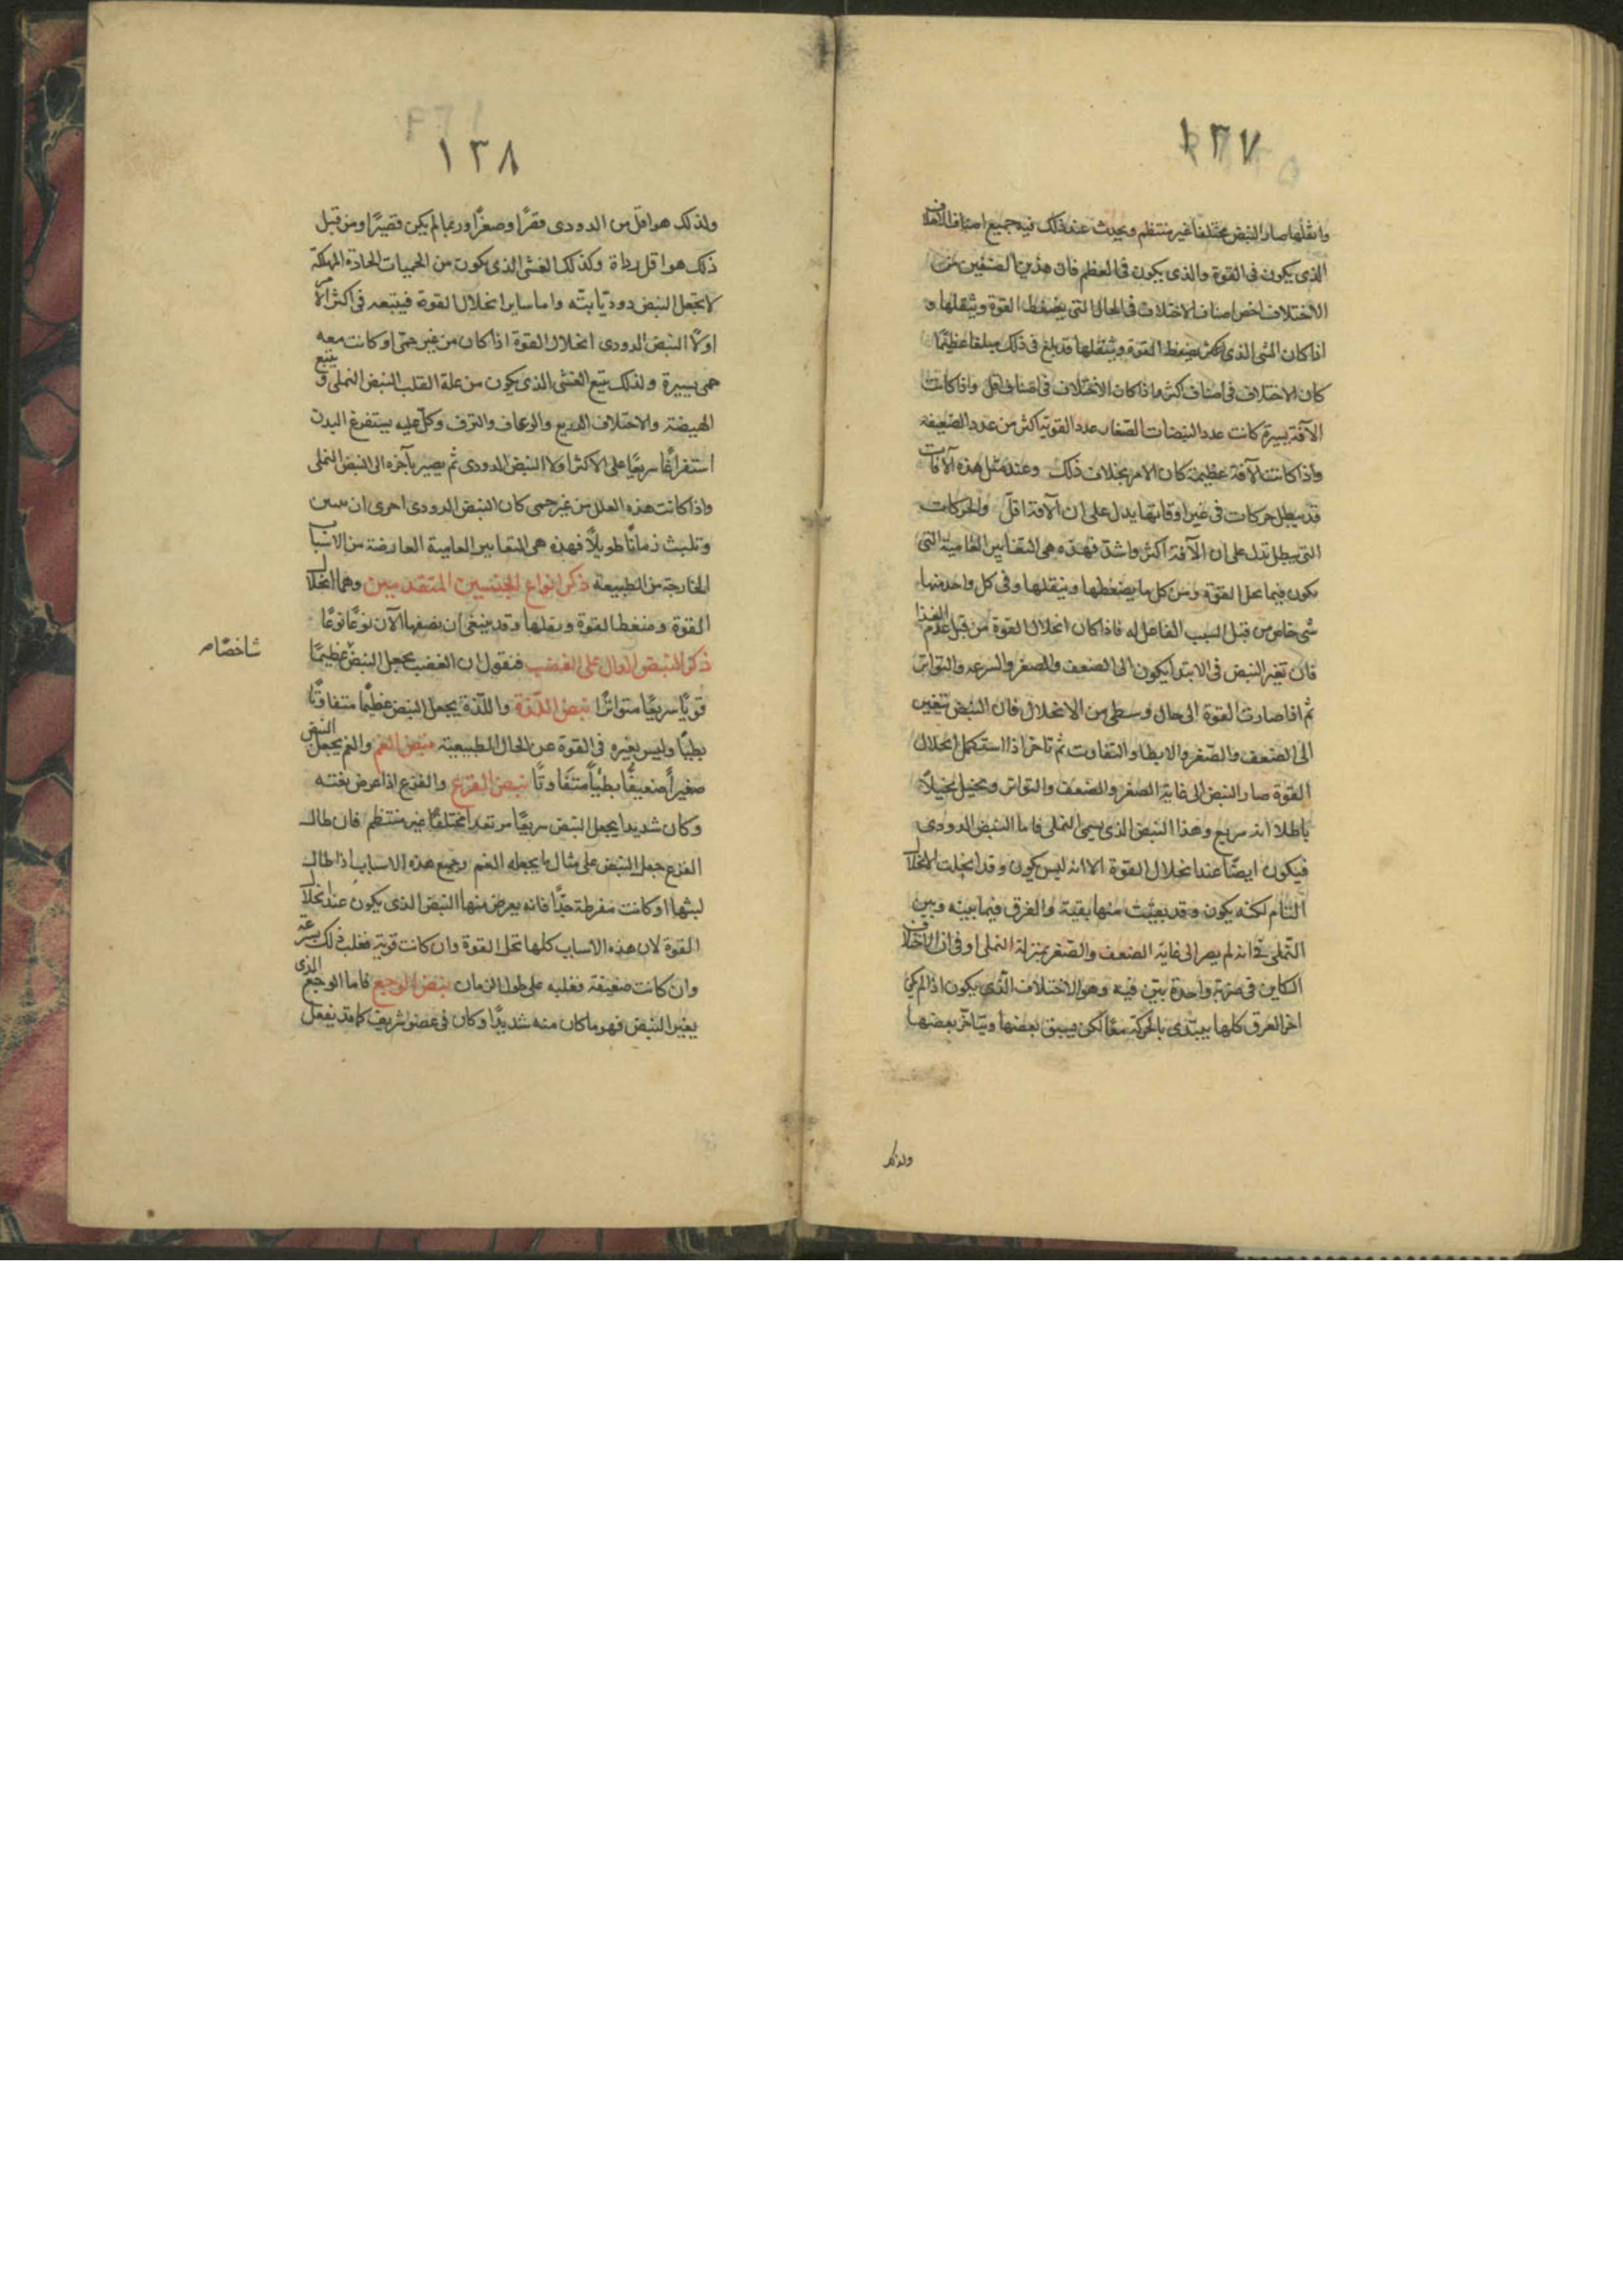 ١٣٧
واثقلها صار النبض مختلفا غير منتظم ويحدث عند ذلك فيه جميع اصناف الاختلاف
الذى يكون فى القوة والذى يكون فى العظم فان هذين الصنفين من
الاختلاف اخص اصناف الاختلاف فى الحال التى يضغط القوة ويثقلها و
اذا كان الشى الذى يضغط القوة ويثقلها قد بلغ فى ذلك مبلغا عظيمًا
كان الاختلاف فى اصناف اكثر واذا كان الاختلاف فى اصناف اقل واذا كانت
الآفة يسيرة كانت عدد النبضات الصغار عدد القوية اكثر من عدد الضعيفة
واذا كانت الآفة عظيمة كان الامر بخلاف ذلك وعند مثل هذه الآفات
قد يبطل حركات فى غير اوقاتها يدل على ان الآفة اقل والحركات
التى يبطل تدل على ان الآفة اكثر واشد فهذه هى التغايير العامية التى
يكون فيما يحل القوة ومن كل ما يضغطها ويثقلها وفى كل واحد منها
شى خاص من قبل السبب الفاعل له فاذا كان انحلال القوة من قبل عدم الغذا
فان تغير النبض فى الابتدا يكون الى الضعف والصغر والسرعه والتواتر
ثم اذا صارت القوة الى حال وسطى من الانحلال فان النبض يتغير
الى الضعف والصغر والابطا والتفاوت ثم تاخر اذا استكمل انحلال
القوة صار النبض الى غاية الصغر والضعف والتواتر ويخيل تخيلاً
باطلا انه سريع وهذا النبض الذى يسمى النملى فاما النبض الدودى
فيكون ايضًا عند انحلال القوة الا انه ليس يكون وقد انحلت الانحلال
التام لكنه يكون وقد بقيت منها بقية والفرق فيما بينه وبين
النملى فى انه لم يصر الى غاية الضعف والصغر بمنزلة النملى وفى ان الاختلاف
الكاين فى ضربة واحدة بيّن فيه وهو الاختلاف الذى يكون اذا لم يكن
اجزا العرق كلها يبتدى بالحركة معًا لكن يسبق بعضها ويتاخر بعضها
ولذلك
١٣٨
ولذلك هو اقل من الدودى قصرًا وصغرًا وربما لم يكن قصيرًا ومن قبل
ذلك هو اقل رداة وكذلك الغشى الذى يكون من الحميات الحادة المهلكة
لا يجعل النبض دوديًا بتّه واما ساير انحلال القوة فيتبعه فى اكثر الامر
اولاً النبض الدودى انحلال القوة اذا كان من غير حمى او كانت معه
حمى يسيرة ولذلك يتبع الغشى الذى يكون من علة القلب النبض النملى و يتبع
الهيضة والاختلاف الذريع والرعاف والنزف وكل علة يستفرغ البدن
استفراغًا سريعًا على الاكثر اولا النبض الدودى ثم يصير بآخره الى النبض النملى
واذا كانت هذه العلل من غير حمى كان النبض الدودى احرى ان
وتلبث زمانًا طويلاً فهذه هى التغايير العامية العارضة من الاسباب
الخارجة من الطبيعه ذكر انواع الجنسين المتقدمين وهما انحلال
القوة وضغط القوة وثقلها وقد ينبغى ان نصفها الآن نوعًا نوعًا
ذكر النبض الدال على الغضب فنقول ان الغضب يجعل النبض عظيمًا
شاخصًا
قويًا سريعًا متواترًا نبض اللذة واللذة يجعل النبض عظيمًا متفاوتًا
بطيًا وليس يغيره فى القوة عن الحال الطبيعية نبض الغم والغم يجعل النبض
صغيراً ضعيفًا بطيًا متفاوتًا نبض الفزع والفزع اذا عرض بغتة
وكان شديدا يجعل النبض سريعًا مرتعدا مختلفًا غير منتظم فان طال
الفزع جعل النبض على مثال ما يجعله الغم وجميع هذه الاسباب اذا طال
لبثها او كانت مفرطة جدًا فانه يعرض منها النبض الذى يكون عند انحلال
القوة لان هذه الاسباب كلها تحل القوة وان كانت قوية فعلت ذلك بسرعة
وان كانت ضعيفة فعلته على طول الزمان نبض الوجع فاما الوجع الذى
يغير النبض فهو ما كان منه شديدًا وكان فى عضو شريف كما قد يفعل